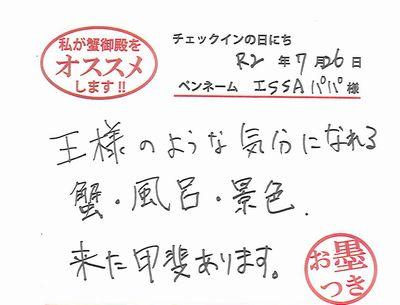 私が蟹御殿を
オススメ
します!!
チェックインの日にち
R2 年 7月 26 日
ペンネーム ISSAパパ 様
王様のような気分になれる
蟹・風呂・景色.
来た甲斐あります。
お墨
つき